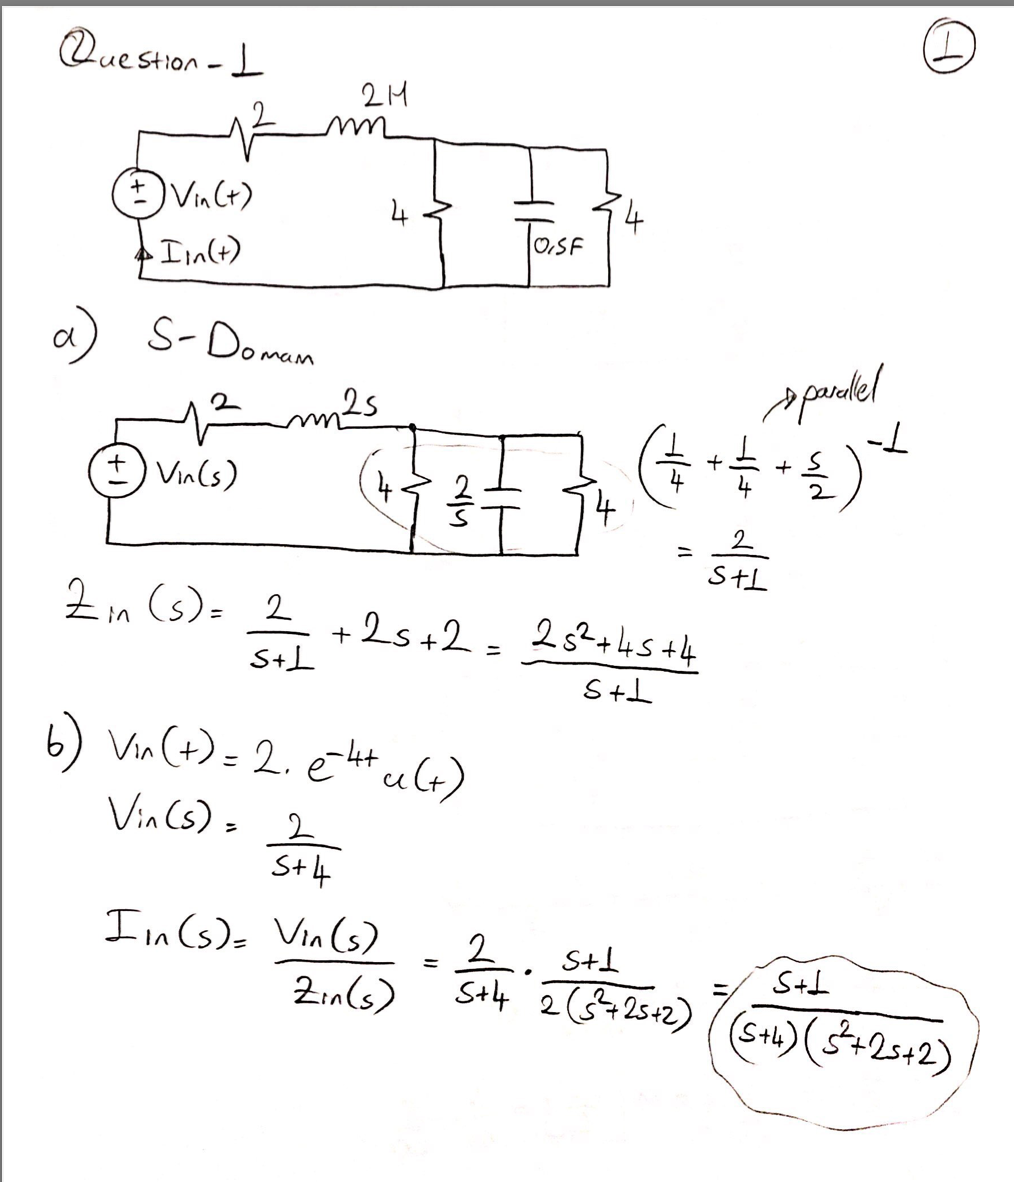 Question - 1
①
2 2H
Vin(t)
4 4
Iin(t) 0,5F
a) S-Domain
→ parallel
2 2s
Vin(s) 4 2/s 4 (1/4 + 1/4 + s/2)^-1
= 2/(s+1)
Zin(s) = 2/(s+1) + 2s + 2 = (2s²+4s+4)/(s+1)
b) Vin(t) = 2. e^-4t u(t)
Vin(s) = 2/(s+4)
Iin(s) = Vin(s)/Zin(s) = 2/(s+4) · (s+1)/(2(s²+2s+2)) = (s+1)/((s+4)(s²+2s+2))